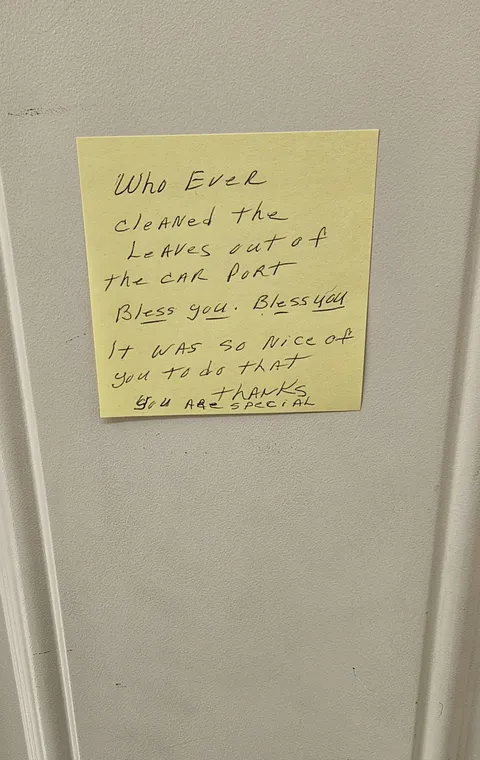 Who Ever
cleaned the
Leaves out of
the CAR PORT
Bless you. Bless you
It was so Nice of
you to do that
thanks
You are special